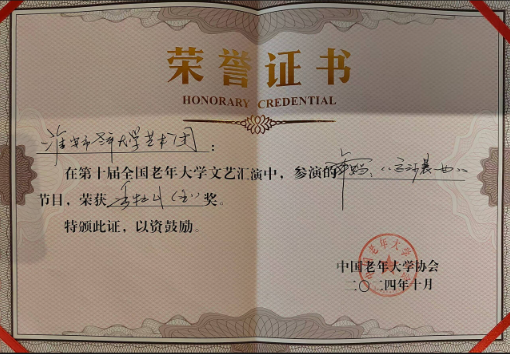 荣誉证书
HONORARY CREDENTIAL
淮安市老年大学艺术团：
在第十届全国老年大学文艺汇演中，参演的舞蹈
节目，荣获 奖。
特颁此证，以资鼓励。
中国老年大学协会
二〇二四年十月